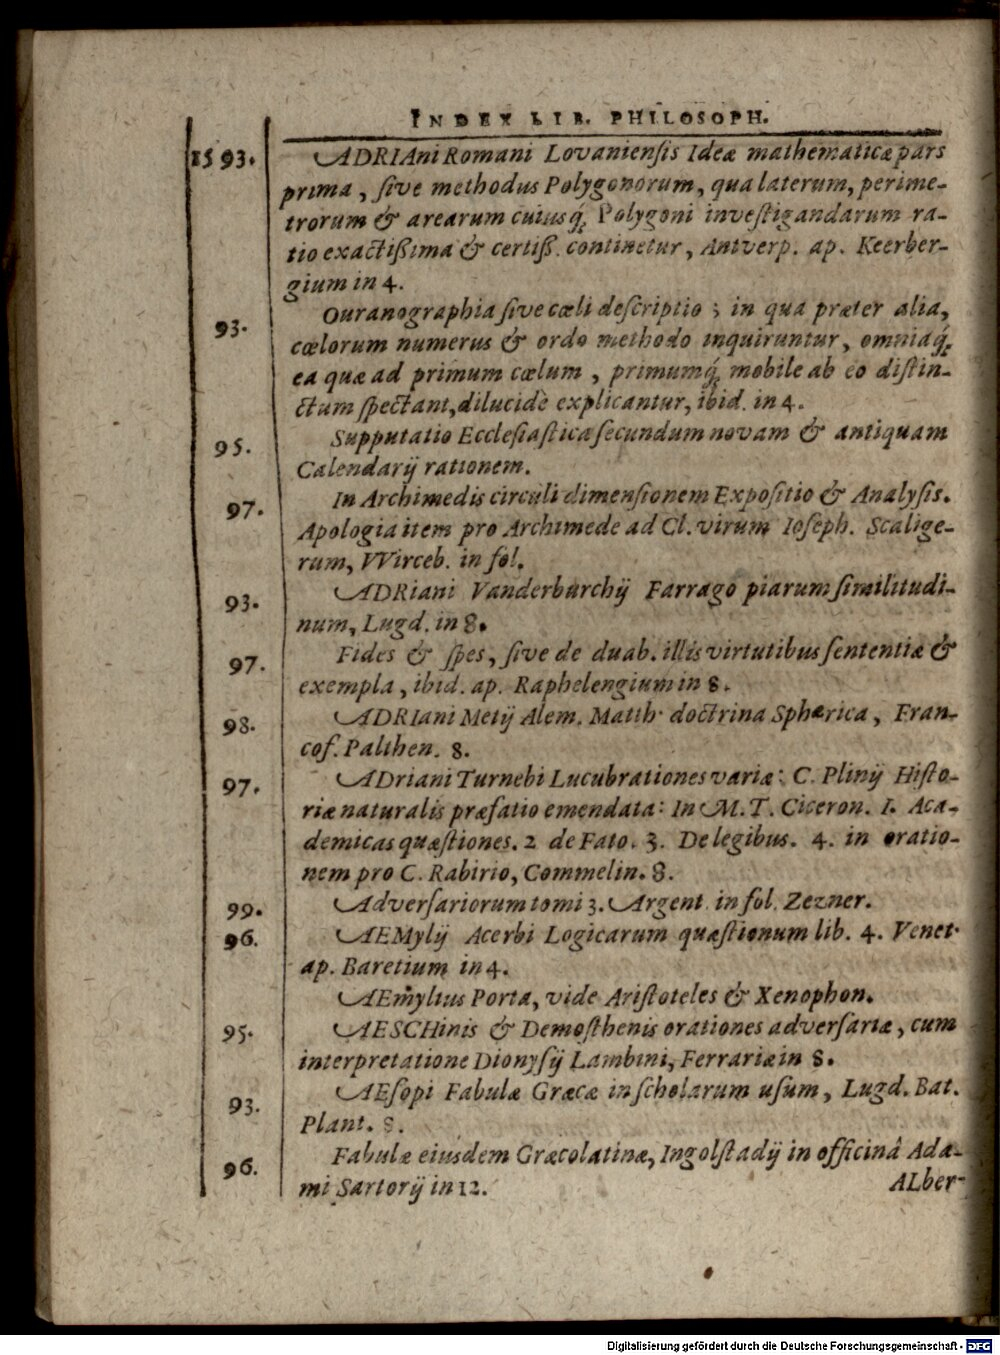 INDEX LIB. PHILOSOPH.
1593. ADRIAni Romani Lovaniensis Ideæ mathematicæ pars
prima, sive methodus Polygonorum, qua laterum, perime-
trorum & arearum cuiusq́; Polygoni investigandarum ra-
tio exactißima & certiß. continetur, Antverp. ap. Keerber-
gium in 4.
93. Ouranographia sive cœli descriptio; in qua præter alia,
cœlorum numerus & ordo methodo inquiruntur, omniaq́;
ea quæ ad primum cœlum, primumq́; mobile ab eo distin-
ctum spectant, dilucidè explicantur, ibid. in 4.
95. Supputatio Ecclesiasticæ secundum novam & antiquam
Calendarij rationem.
97. In Archimedis circuli dimensionem Expositio & Analysis.
Apologia item pro Archimede ad Cl. virum Ioseph. Scalige-
rum, VVirceb. in fol.
93. ADRiani Vanderburchij Farrago piarum similitudi-
num, Lugd. in 8.
97. Fides & spes, sive de duab. illis virtutibus sententiæ &
exempla, ibid. ap. Raphelengium in 8.
98. ADRIani Metij Alem. Matth. doctrina Sphærica, Fran-
cof. Palthen. 8.
97. ADriani Turnebi Lucubrationes variæ: C. Plinij Histo-
riæ naturalis præfatio emendata: In M. T. Ciceron. I. Aca-
demicas quæstiones. 2 de Fato. 3. De legibus. 4. in oratio-
nem pro C. Rabirio, Commelin. 8.
99. Adversariorum tomi 3. Argent. in fol. Zezner.
96. AEMylij Acerbi Logicarum quæstionum lib. 4. Venet.
ap. Baretium in 4.
AEmylius Porta, vide Aristoteles & Xenophon.
95. AESCHinis & Demosthenis orationes adversariæ, cum
interpretatione Dionysij Lambini, Ferrariæ in 8.
93. AEsopi Fabulæ Græcæ in scholarum usum, Lugd. Bat.
Plant. 8.
96. Fabulæ eiusdem Græcolatinæ, Ingolstadij in officinâ Ada-
mi Sartorij in 12.
ALber-
Digitalisierung gefördert durch die Deutsche Forschungsgemeinschaft - DFG